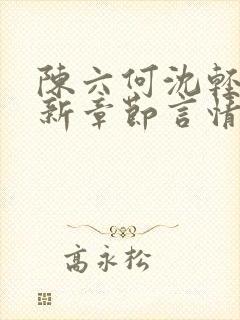 陳六何沈輕
新章節言情
高永松